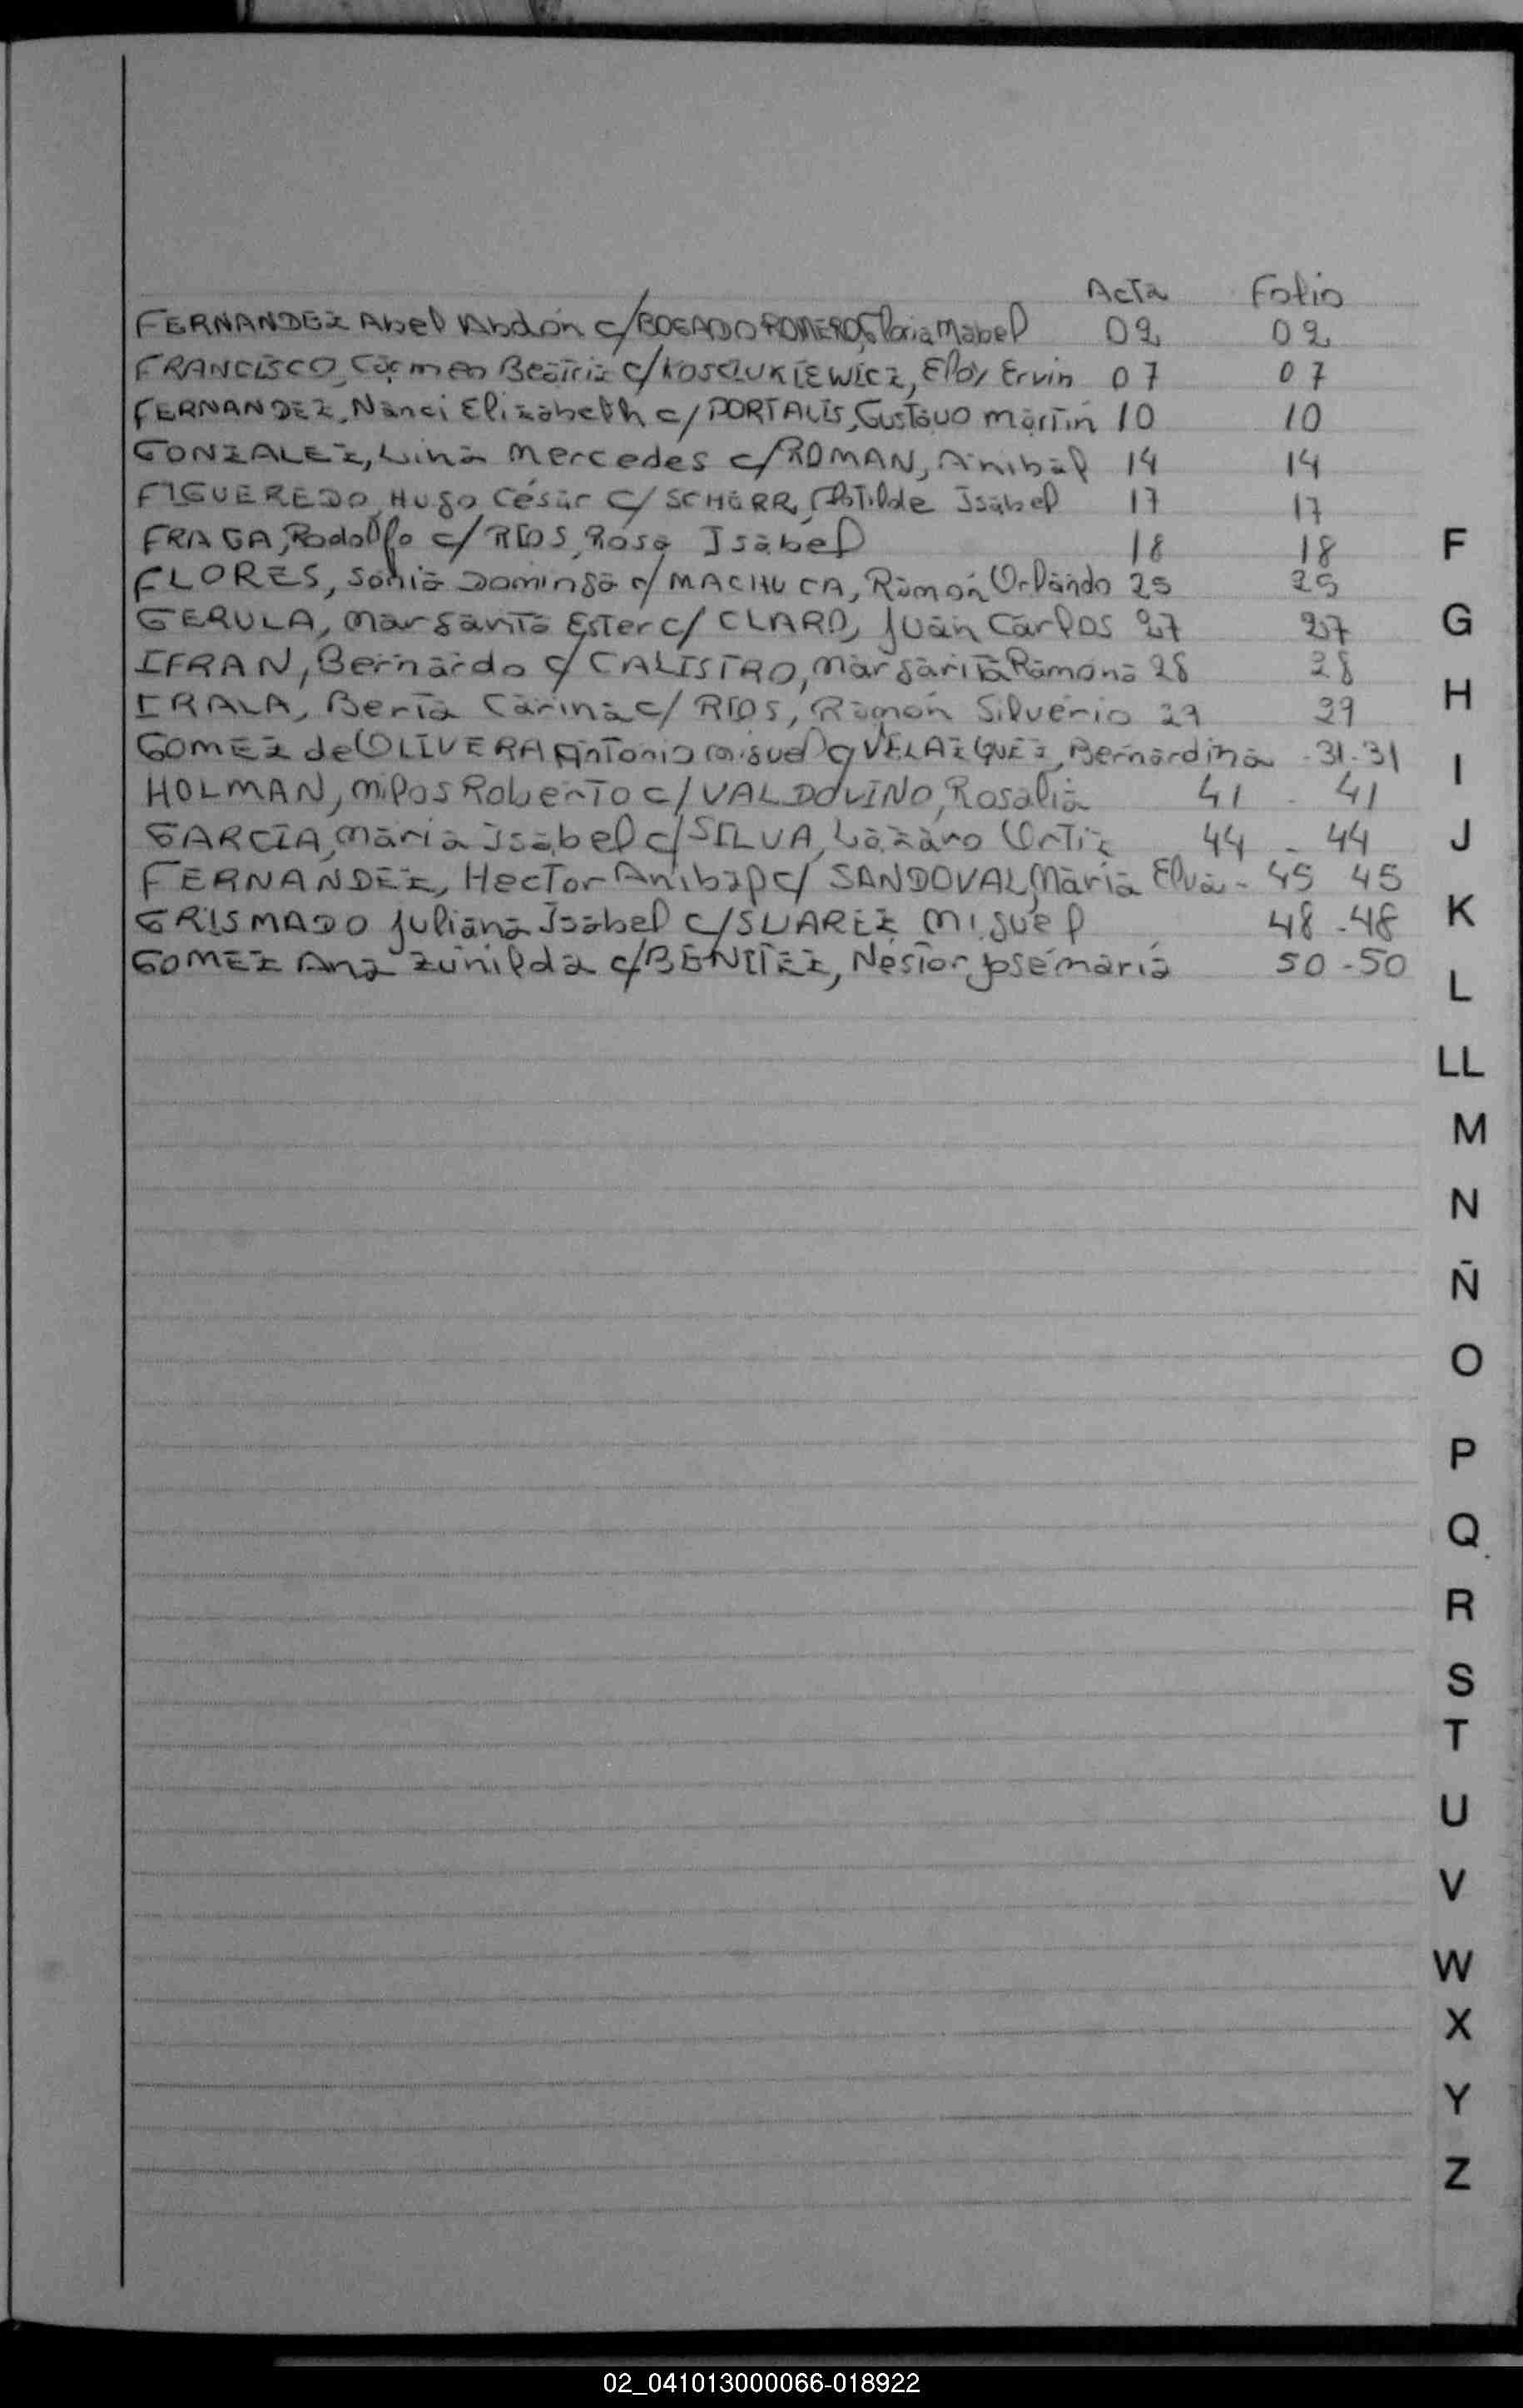 Acta Folio
FERNANDEZ Abel Abdón c/BOGADO ROMERO, Gloria Mabel 02 02
FRANCISCO, Carmen Beatriz c/KOSCIUKIEWICZ, Eloy Ervin 07 07
FERNANDEZ, Nanci Elizabeth c/PORTALIS, Gustavo Martín 10 10
GONZALEZ, Lina Mercedes c/ROMAN, Anibal 14 14
FIGUEREDO, Hugo César c/SCHERR, Clotilde Isabel 17 17
FRAGA, Rodolfo c/RIOS, Rosa Isabel 18 18
F
FLORES, Sonia Dominga c/MACHUCA, Ramón Orlando 25 25
GERULA, Margarita Ester c/CLARO, Juan Carlos 27 27
G
IFRAN, Bernardo c/CALISTRO, Margarita Ramona 28 28
IRALA, Berta Carina c/RIOS, Ramón Silverio 29 29
H
GOMEZ de OLIVERA Antonio Miguel c/VELAZQUEZ, Bernardina - 31-31
I
HOLMAN, Milos Roberto c/VALDOVINO, Rosalia 41 - 41
GARCIA, Maria Isabel c/SILVA, Lázaro Ortiz 44 - 44
J
FERNANDEZ, Hector Anibal c/SANDOVAL, María Elva - 45 45
GRISMADO Juliana Isabel c/SUAREZ Miguel 48-48
K
GOMEZ Ana Zunilda c/BENITEZ, Néstor José María 50-50
L
LL
M
N
Ñ
O
P
Q
R
S
T
U
V
W
X
Y
Z
02_041013000066-018922